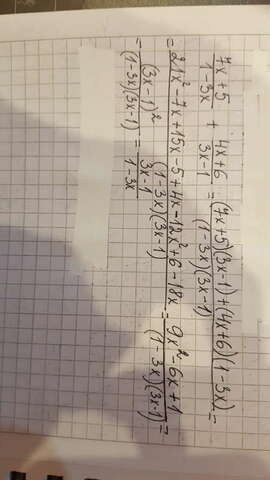 (7x+5)/(1-3x) + (4x+6)/(3x-1) = ((7x+5)(3x-1)+(4x+6)(1-3x))/((1-3x)(3x-1)) =
= (21x²-7x+15x-5+4x-12x²+6-18x)/((1-3x)(3x-1)) = (9x²-6x+1)/((1-3x)(3x-1)) =
= (3x-1)²/((1-3x)(3x-1)) = (3x-1)/(1-3x)